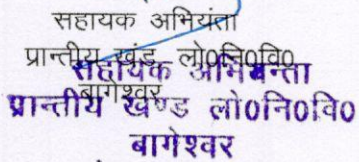 सहायक अभियंता
प्रान्तीय खंड लो०नि०वि०
बागेश्वर
सहायक अभियन्ता
प्रान्तीय खण्ड लो0नि0वि0
बागेश्वर